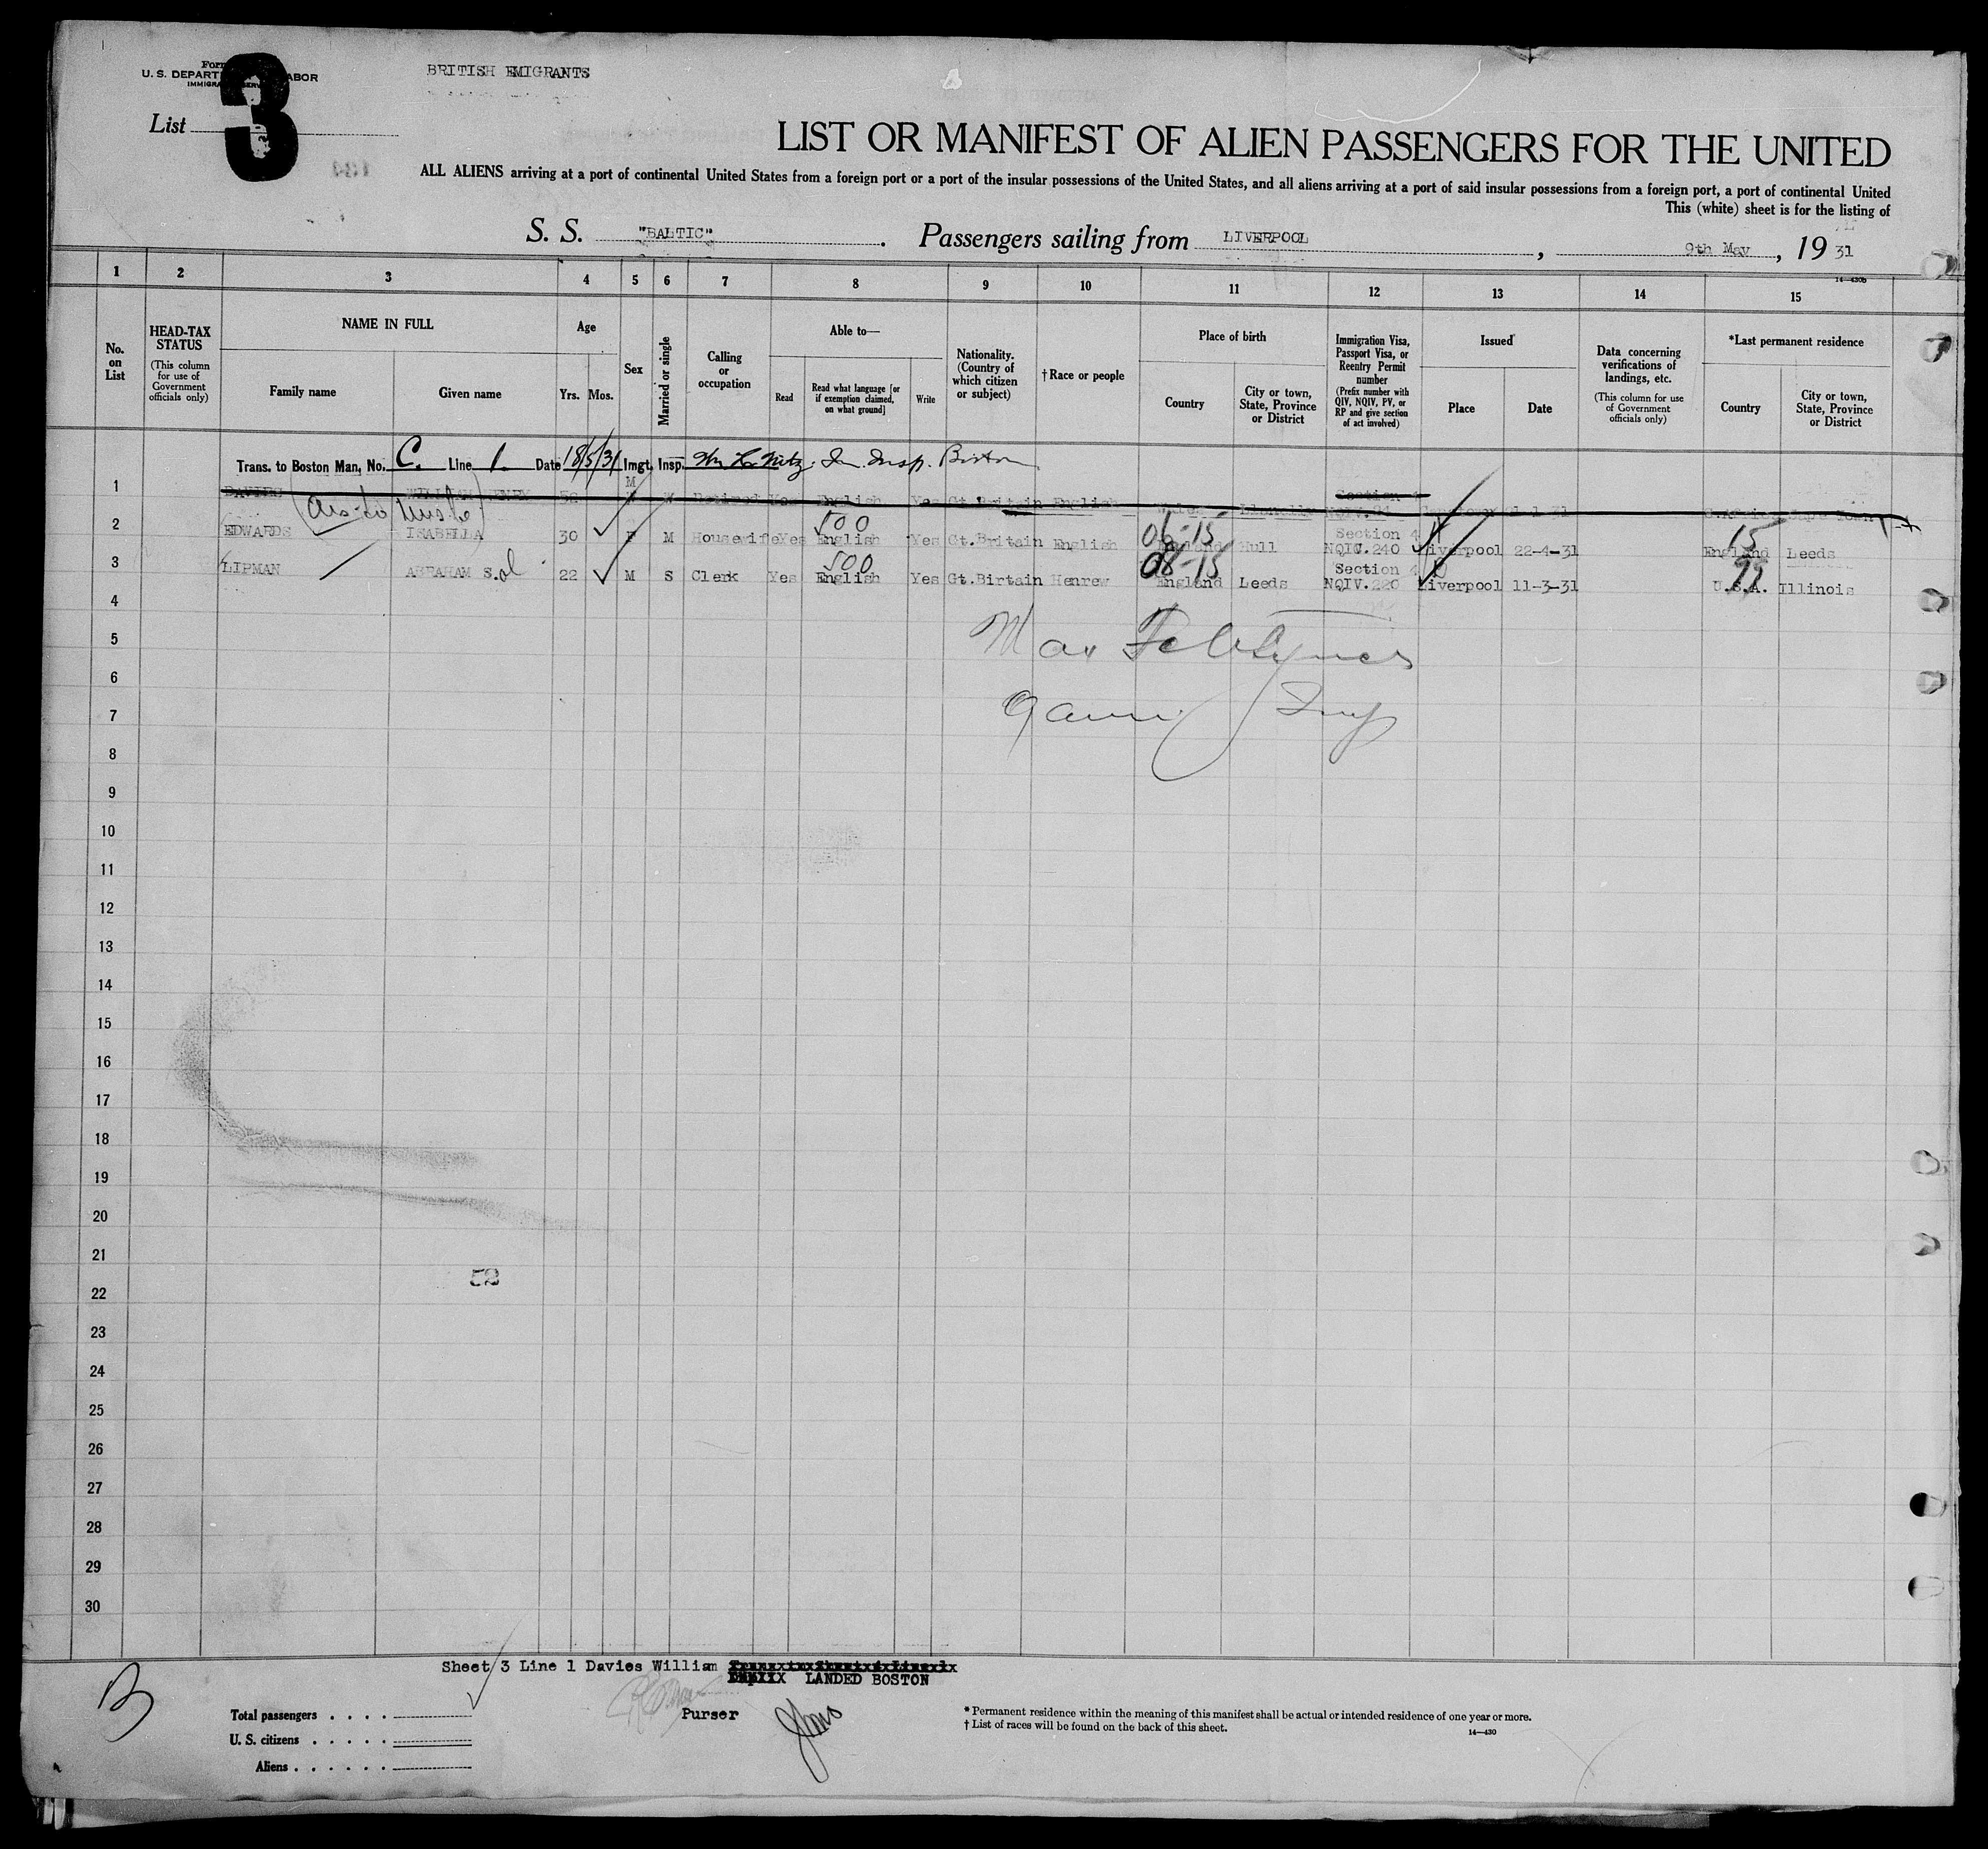 Form
U. S. DEPART ABOR
IMMIGRA SERV
3
BRITISH EMIGRANTS
List
LIST OR MANIFEST OF ALIEN PASSENGERS FOR THE UNITED
ALL ALIENS arriving at a port of continental United States from a foreign port or a port of the insular possessions of the United States, and all aliens arriving at a port of said insular possessions from a foreign port, a port of continental United
This (white) sheet is for the listing of
S. S. "BALTIC". Passengers sailing from LIVERPOOL, 9th May, 1931
14—430b
1 2 3 4 5 6 7 8 9 10 11 12 13 14 15
No. on List
HEAD-TAX STATUS (This column for use of Government officials only)
NAME IN FULL
Family name Given name
Age
Yrs. Mos.
Sex
Married or single
Calling or occupation
Able to—
Read Read what language [or if exemption claimed, on what ground] Write
Nationality. (Country of which citizen or subject)
†Race or people
Place of birth
Country City or town, State, Province or District
Immigration Visa, Passport Visa, or Reentry Permit number (Prefix number with QIV, NQIV, PV, or RP and give section of act involved)
Issued
Place Date
Data concerning verifications of landings, etc. (This column for use of Government officials only)
*Last permanent residence
Country City or town, State, Province or District
Trans. to Boston Man. No. C. Line 1. Date 18/5/31 Imgt. Insp. Im. Insp. Boston
1 DAVIES WILLIAM HENRY M W Retired Yes English Yes Gt.Britain English Wales Llanelly Section 4 Cape Town
2 EDWARDS ISABELLA 30 F M Housewife Yes 500 English Yes Gt.Britain English 06-15 England Hull Section 4 NQIV.240 Liverpool 22-4-31 15 England Leeds
3 LIPMAN ABRAHAM S. 22 M S Clerk Yes 500 English Yes Gt.Birtain Henrew 08-15 England Leeds Section 4 NQIV.220 Liverpool 11-3-31 U.S.A. Illinois
4
5 Max
6
7 Insp
8
9
10
11
12
13
14
15
16
17
18
19
20
21
52
22
23
24
25
26
27
28
29
30
Sheet 3 Line 1 Davies William
LANDED BOSTON
B
Purser
Total passengers
U. S. citizens
Aliens
* Permanent residence within the meaning of this manifest shall be actual or intended residence of one year or more.
† List of races will be found on the back of this sheet.
14—430